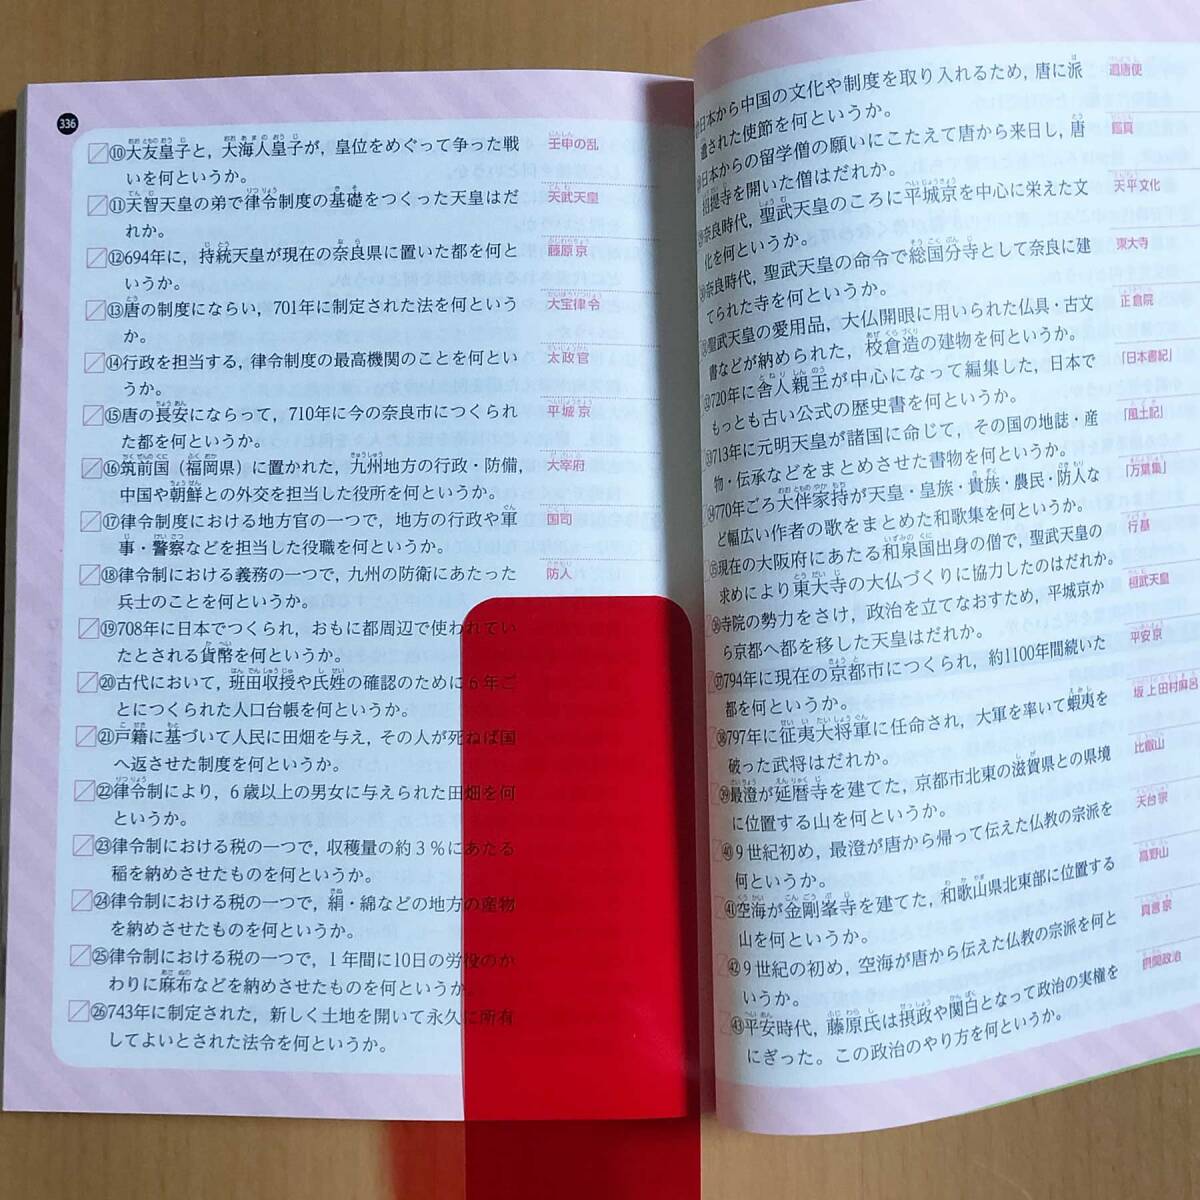 336
⑩大友皇子と，大海人皇子が，皇位をめぐって争った戦 壬申の乱
いを何というか。
⑪天智天皇の弟で律令制度の基礎をつくった天皇はだ 天武天皇
れか。
⑫694年に，持統天皇が現在の奈良県に置いた都を何と 藤原京
いうか。
⑬唐の制度にならい，701年に制定された法を何という 大宝律令
か。
⑭行政を担当する，律令制度の最高機関のことを何とい 太政官
うか。
⑮唐の長安にならって，710年に今の奈良市につくられ 平城京
た都を何というか。
⑯筑前国（福岡県）に置かれた，九州地方の行政・防備， 大宰府
中国や朝鮮との外交を担当した役所を何というか。
⑰律令制度における地方官の一つで，地方の行政や軍 国司
事・警察などを担当した役職を何というか。
⑱律令制における義務の一つで，九州の防衛にあたった 防人
兵士のことを何というか。
⑲708年に日本でつくられ，おもに都周辺で使われてい
たとされる貨幣を何というか。
⑳古代において，班田収授や氏姓の確認のために6年ご
とにつくられた人口台帳を何というか。
㉑戸籍に基づいて人民に田畑を与え，その人が死ねば国
へ返させた制度を何というか。
㉒律令制により，6歳以上の男女に与えられた田畑を何
というか。
㉓律令制における税の一つで，収穫量の約3％にあたる
稲を納めさせたものを何というか。
㉔律令制における税の一つで，絹・綿などの地方の産物
を納めさせたものを何というか。
㉕律令制における税の一つで，1年間に10日の労役のか
わりに麻布などを納めさせたものを何というか。
㉖743年に制定された，新しく土地を開いて永久に所有
してよいとされた法令を何というか。
日本から中国の文化や制度を取り入れるため，唐に派 遣唐使
遣された使節を何というか。
日本からの留学僧の願いにこたえて唐から来日し，唐 鑑真
招提寺を開いた僧はだれか。
奈良時代，聖武天皇のころに平城京を中心に栄えた文 天平文化
化を何というか。
奈良時代，聖武天皇の命令で総国分寺として奈良に建 東大寺
てられた寺を何というか。
聖武天皇の愛用品，大仏開眼に用いられた仏具・古文 正倉院
書などが納められた，校倉造の建物を何というか。
720年に舎人親王が中心になって編集した，日本で 「日本書紀」
もっとも古い公式の歴史書を何というか。
㉝713年に元明天皇が諸国に命じて，その国の地誌・産 「風土記」
物・伝承などをまとめさせた書物を何というか。
㉞770年ごろ大伴家持が天皇・皇族・貴族・農民・防人な 「万葉集」
ど幅広い作者の歌をまとめた和歌集を何というか。
㉟現在の大阪府にあたる和泉国出身の僧で，聖武天皇の 行基
求めにより東大寺の大仏づくりに協力したのはだれか。
㊱寺院の勢力をさけ，政治を立てなおすため，平城京か 桓武天皇
ら京都へ都を移した天皇はだれか。
㊲794年に現在の京都市につくられ，約1100年間続いた 平安京
都を何というか。
㊳797年に征夷大将軍に任命され，大軍を率いて蝦夷を 坂上田村麻呂
破った武将はだれか。
㊴最澄が延暦寺を建てた，京都市北東の滋賀県との県境 比叡山
に位置する山を何というか。
㊵9世紀初め，最澄が唐から帰って伝えた仏教の宗派を 天台宗
何というか。
㊶空海が金剛峯寺を建てた，和歌山県北東部に位置する 高野山
山を何というか。
㊷9世紀の初め，空海が唐から伝えた仏教の宗派を何と 真言宗
いうか。
㊸平安時代，藤原氏は摂政や関白となって政治の実権を 摂関政治
にぎった。この政治のやり方を何というか。